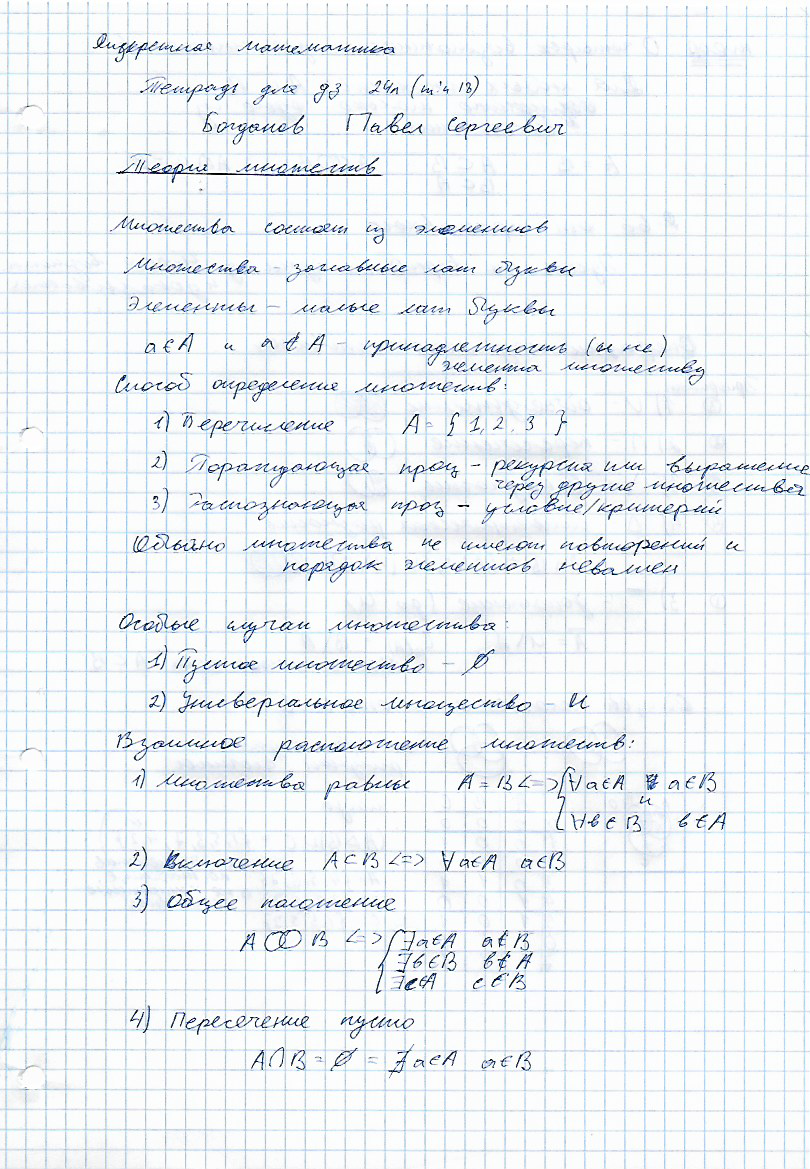 Дискретная математика
Тетрадь для дз 24л (min 18)
Богданов Павел Сергеевич
Теория множеств
Множества состоят из элементов
Множества - заглавные лат буквы
Элементы - малые лат буквы
a∈A и a∉A - принадлежность (и не)
элемента множеству
Способ определения множеств:
1) Перечисление A = { 1, 2, 3 }
2) Порождающая проц - рекурсия или выражение
через другие множества
3) Распознающая проц - условие/критерий
Обычно множества не имеют повторений и
порядок элементов неважен
Особые случаи множества:
1) Пустое множество - ∅
2) Универсальное множество - U
Взаимное расположение множеств:
1) Множества равны A = B <=> { ∀a∈A a∈B
и
∀b∈B b∈A
2) Включение A⊂B <=> ∀a∈A a∈B
3) Общее положение
A B <=> { ∃a∈A a∉B
∃b∈B b∉A
∃c∈A c∈B
4) Пересечение пусто
A∩B = ∅ = ∄ a∈A a∈B